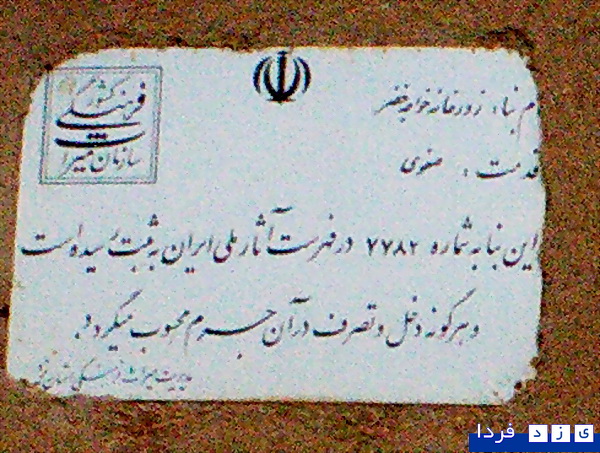 سازمان میراث
فرهنگی کشور
م بنا: زورخانه خواجه خضر
قدمت: صفوی
این بنا به شماره ۷۷۸۲ در فهرست آثار ملی ایران به ثبت رسیده است
و هرگونه دخل و تصرف در آن جرم محسوب میگردد.
مدیریت میراث فرهنگی استان یزد
یزد فردا